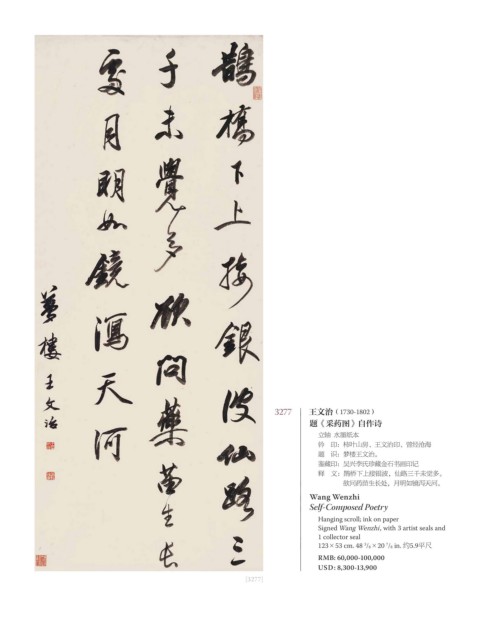 鵲橋下上接銀波仙路三
千未覺多欲問藥苗生長
處月明如鏡瀉天河
夢樓王文治
[3277]
3277
王文治（1730-1802）
题《采药图》自作诗
立轴 水墨纸本
钤 印：柿叶山房、王文治印、曾经沧海
题 识：梦楼王文治。
鉴藏印：吴兴李氏珍藏金石书画印记
释 文：鹊桥下上接银波，仙路三千未觉多。
欲问药苗生长处，月明如镜泻天河。
Wang Wenzhi
Self-Composed Poetry
Hanging scroll; ink on paper
Signed Wang Wenzhi, with 3 artist seals and
1 collector seal
123 × 53 cm. 48 3/8 × 20 7/8 in. 约5.9平尺
RMB: 60,000-100,000
USD: 8,300-13,900